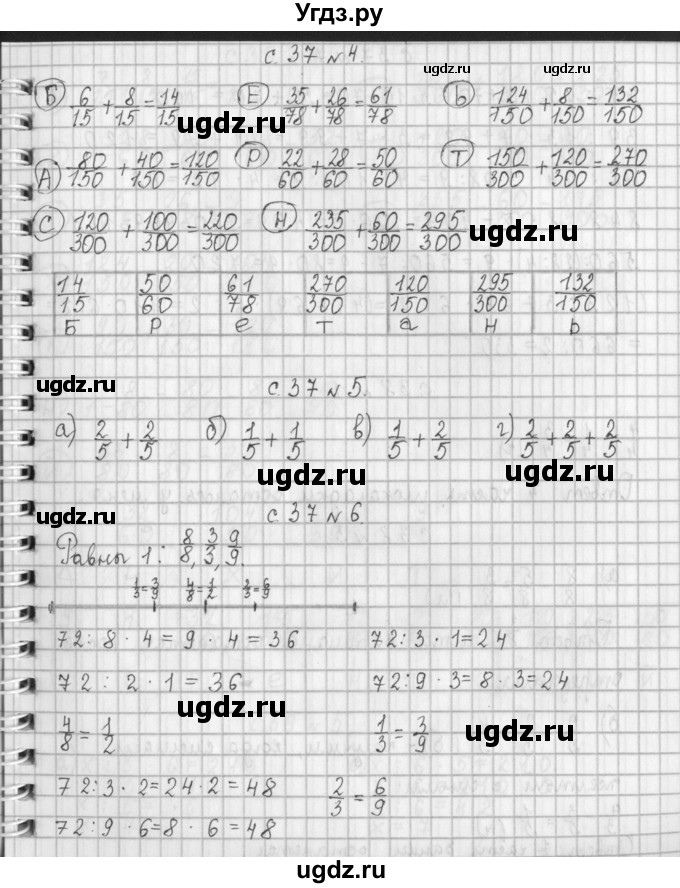 Угдз.ру
с. 37 № 4.
ugdz.ru
Б 6/15 + 8/15 = 14/15 Е 35/78 + 26/78 = 61/78 Ь 124/150 + 8/150 = 132/150
ugdz.ru ugdz.ru
А 80/150 + 40/150 = 120/150 Р 22/60 + 28/60 = 50/60 Т 150/300 + 120/300 = 270/300
С 120/300 + 100/300 = 220/300 Н 235/300 + 60/300 = 295/300
ugdz.ru
14/15 50/60 61/78 270/300 120/150 295/300 132/150
Б Р е Т а Н Ь
ugdz.ru
с. 37 № 5.
а) 2/5 + 2/5 б) 1/5 + 1/5 в) 1/5 + 2/5 г) 2/5 + 2/5 + 2/5
ugdz.ru ugdz.ru
ugdz.ru
с. 37 № 6.
Равны 1: 8/8, 3/3, 9/9.
1/3 = 3/9 4/8 = 1/2 2/3 = 6/9
72 : 8 · 4 = 9 · 4 = 36 72 : 3 · 1 = 24
ugdz.ru
72 : 2 · 1 = 36 72 : 9 · 3 = 8 · 3 = 24
ugdz.ru
4/8 = 1/2 1/3 = 3/9
72 : 3 · 2 = 24 · 2 = 48 2/3 = 6/9
ugdz.ru
72 : 9 · 6 = 8 · 6 = 48
ugdz.ru